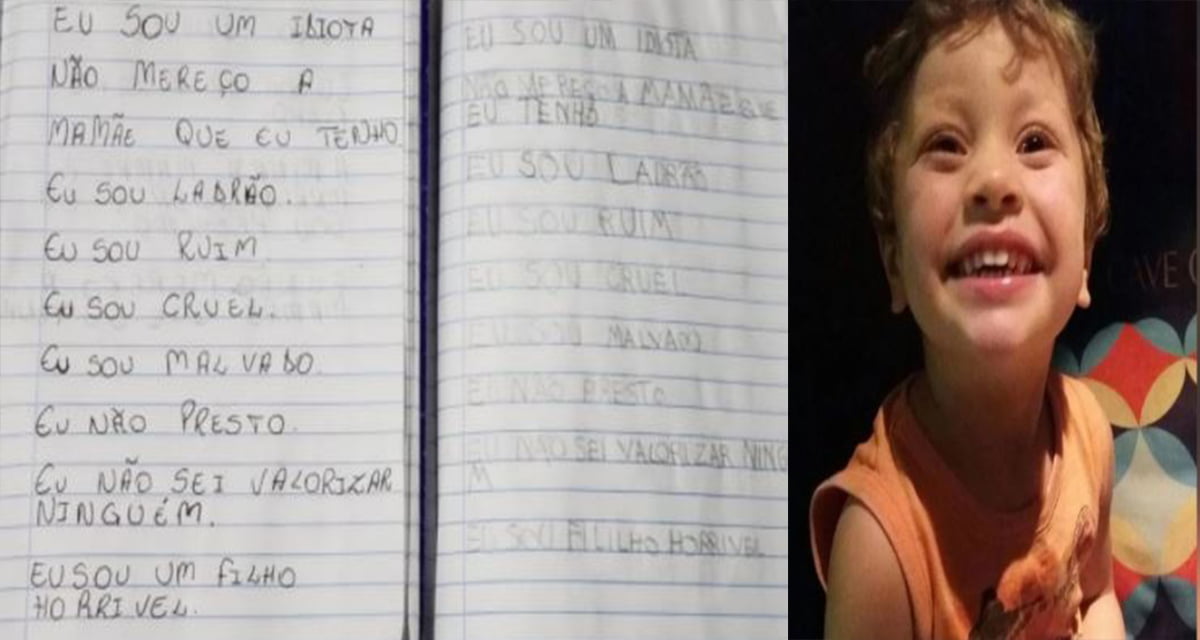 EU SOU UM IDIOTA
NÃO MEREÇO A
MAMÃE QUE EU TENHO.
EU SOU LADRÃO.
EU SOU RUIM.
EU SOU CRUEL.
EU SOU MALVADO.
EU NÃO PRESTO.
EU NÃO SEI VALORIZAR
NINGUÉM.
EU SOU UM FILHO
HORRIVEL.
EU SOU UM IDIOTA
NÃO MEREÇO A MAMÃE QUE
EU TENHO
EU SOU LADRÃO
EU SOU RUIM
EU SOU CRUEL
EU SOU MALVADO
EU NÃO PRESTO
EU NÃO SEI VALORIZAR NINGÉ
M
EU SOU FILILHO HORRIVEL
CAVE